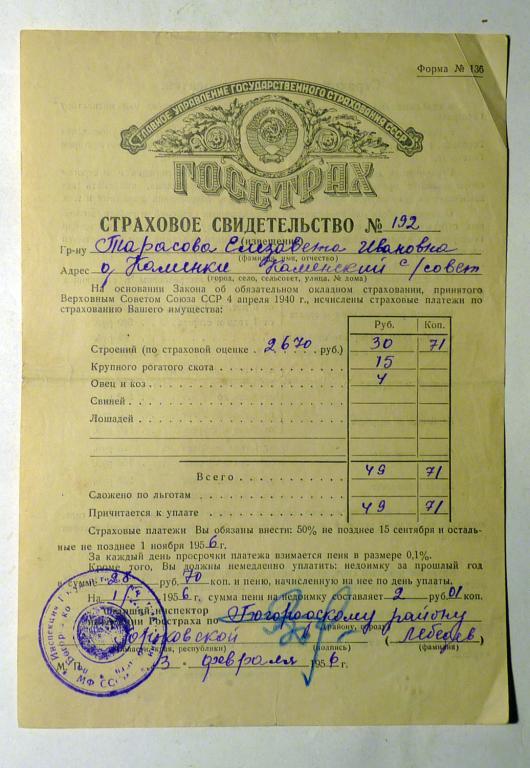 Форма № 136
ГЛАВНОЕ УПРАВЛЕНИЕ ГОСУДАРСТВЕННОГО СТРАХОВАНИЯ СССР
ГОССТРАХ
СТРАХОВОЕ СВИДЕТЕЛЬСТВО № 192
(извещение)
Гр-ну Тарасова Елизавета Ивановна
(фамилия, имя, отчество)
Адрес д Каменки Каменский с/совет
(город, село, сельсовет, улица, № дома)
На основании Закона об обязательном окладном страховании, принятого
Верховным Советом Союза ССР 4 апреля 1940 г., исчислены страховые платежи по
страхованию Вашего имущества:
Руб. Коп.
Строений (по страховой оценке 2670 руб.) 30 71
Крупного рогатого скота 15
Овец и коз 4
Свиней
Лошадей
Всего 49 71
Сложено по льготам
Причитается к уплате 49 71
Страховые платежи Вы обязаны внести: 50% не позднее 15 сентября и осталь-
ные не позднее 1 ноября 1956 г.
За каждый день просрочки платежа взимается пеня в размере 0,1%.
Кроме того, Вы должны немедленно уплатить: недоимку за прошлый год
в сумме 28 руб. 70 коп. и пеню, начисленную на нее по день уплаты.
На 1/ 1956 г. сумма пени на недоимку составляет 2 руб. 01 коп.
инспектор
Госстраха по Богородскому району
(району, городу)
Горьковской (Лебедев)
края, республики) (подпись) (фамилия)
М. П. 3 февраля 1956 г.
Инспекция Г
МФ СССР